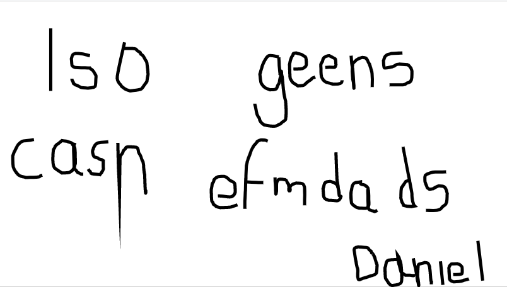 Iso geens
casp efmdads
Daniel